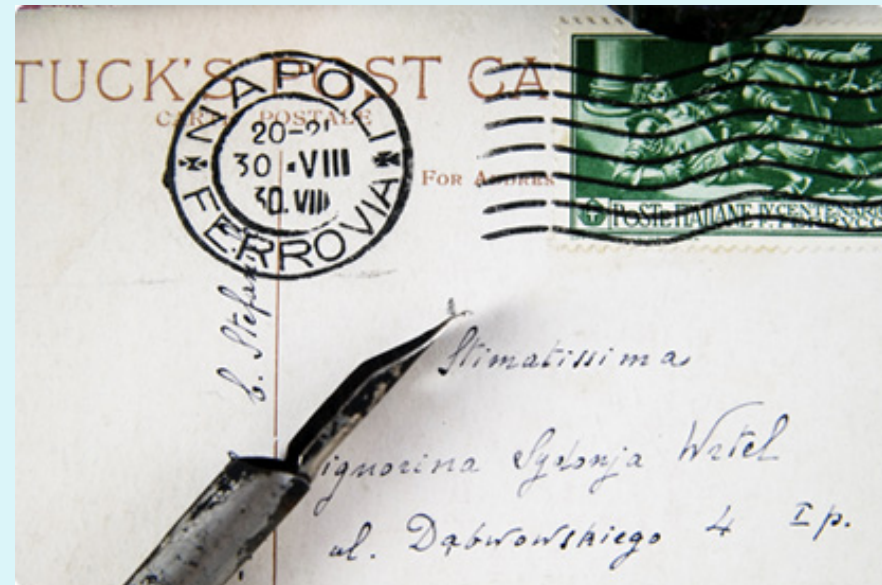 TUCK'S POST CA
CARTE POSTALE
NAPOLI
20-21
30 · VIII
30. VIII
FERROVIA
FOR ADDRES
POSTE ITALIANE IV CENTENARIO
F. FERRUCCI
b. Stefan
Stimatissima
ignorina Sydonja Wrtel
ul. Dąbrowskiego 4 I p.